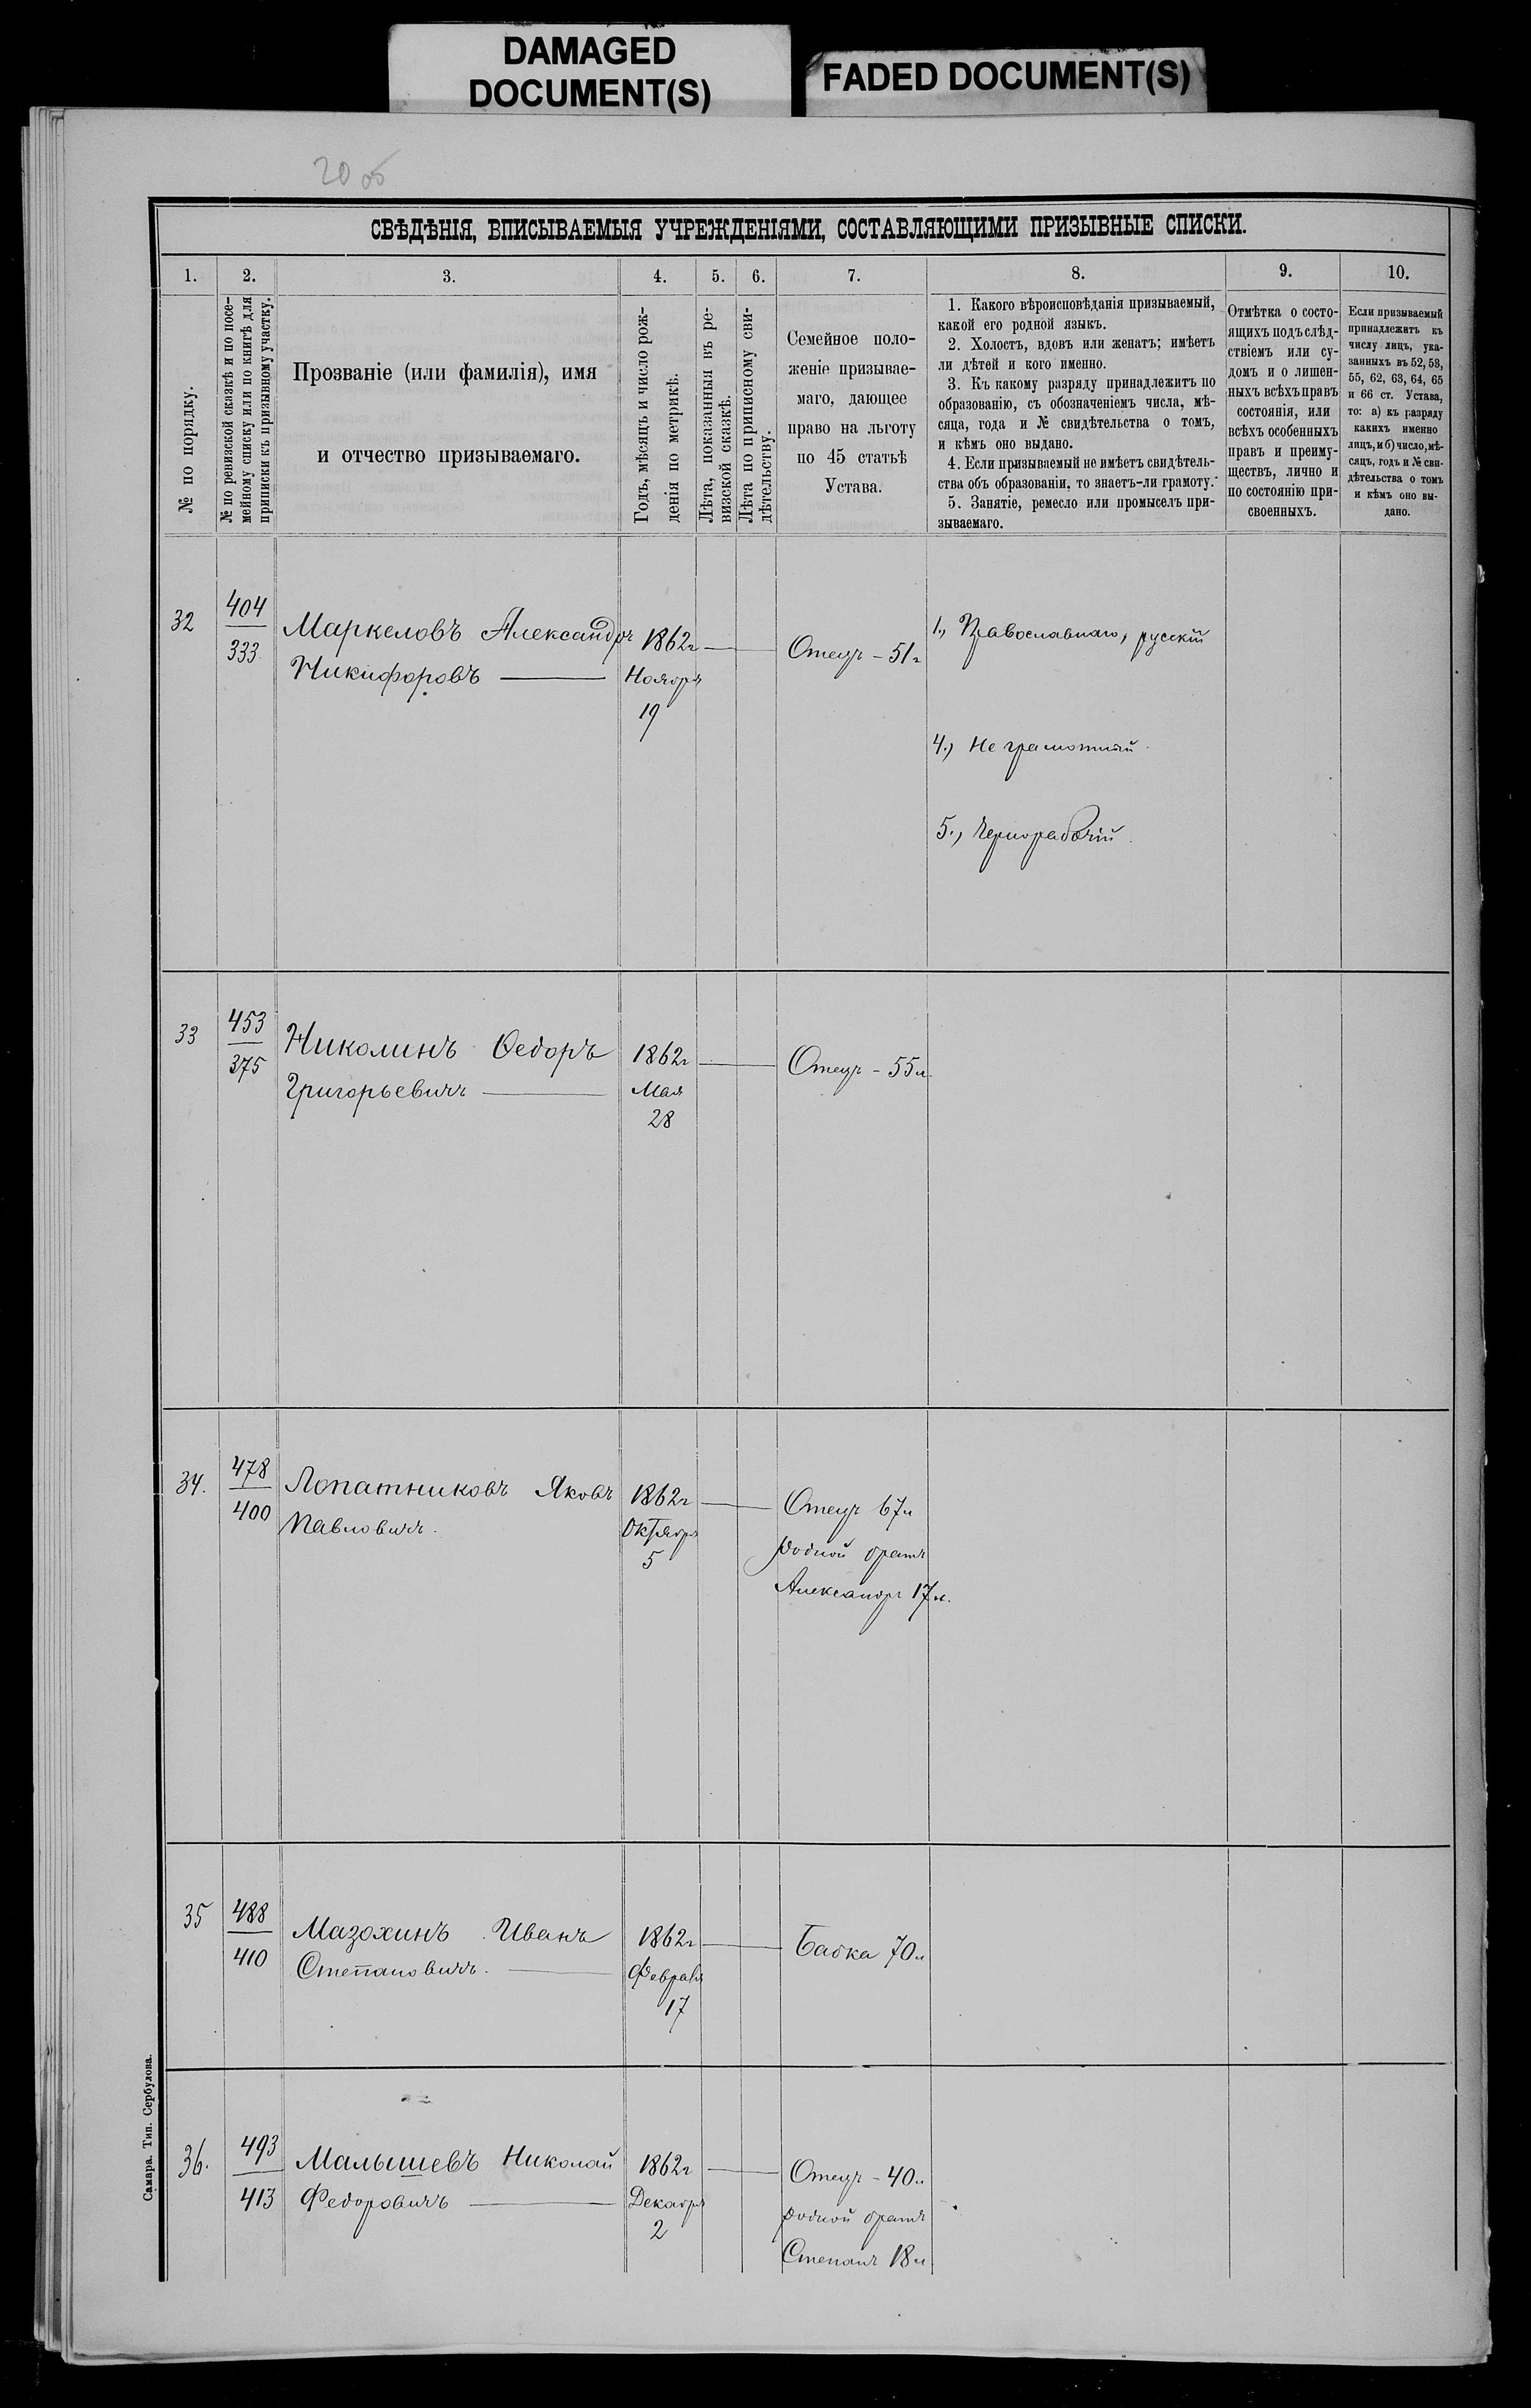 DAMAGED
DOCUMENT(S)
FADED DOCUMENT(S)
20 об
СВѢДѢНІЯ, ВПИСЫВАЕМЫЯ УЧРЕЖДЕНІЯМИ, СОСТАВЛЯЮЩИМИ ПРИЗЫВНЫЕ СПИСКИ.
1.
2.
3.
4.
5.
6.
7.
8.
9.
10.
№ по порядку.
№ по ревизской сказкѣ и по посе-
мейному списку или по книгѣ для
приписки къ призывному участку.
Прозваніе (или фамилія), имя
и отчество призываемаго.
Годъ, мѣсяцъ и число рож-
денія по метрикѣ.
Лѣта, показанныя въ ре-
визской сказкѣ.
Лѣта по приписному сви-
дѣтельству.
Семейное поло-
женіе призывае-
маго, дающее
право на льготу
по 45 статьѣ
Устава.
1. Какого вѣроисповѣданія призываемый,
какой его родной языкъ.
2. Холостъ, вдовъ или женатъ; имѣетъ
ли дѣтей и кого именно.
3. Къ какому разряду принадлежитъ по
образованію, съ обозначеніемъ числа, мѣ-
сяца, года и № свидѣтельства о томъ,
и кѣмъ оно выдано.
4. Если призываемый не имѣетъ свидѣтель-
ства объ образованіи, то знаетъ-ли грамоту.
5. Занятіе, ремесло или промыселъ при-
зываемаго.
Отмѣтка о состо-
ящихъ подъ слѣд-
ствіемъ или су-
домъ и о лишен-
ныхъ всѣхъ правъ
состоянія, или
всѣхъ особенныхъ
правъ и преиму-
ществъ, лично и
по состоянію при-
своенныхъ.
Если призываемый
принадлежитъ къ
числу лицъ, ука-
занныхъ въ 52, 53,
55, 62, 63, 64, 65
и 66 ст. Устава,
то: а) къ разряду
какихъ именно
лицъ, и б) число, мѣ-
сяцъ, годъ и № сви-
дѣтельства о томъ
и кѣмъ оно вы-
дано.
32
404
333
Маркеловъ Александръ
Никифоровъ
1862г
Ноября
19
Отецъ - 51г
1., Православнаго, русскій
4.) Не грамотный.
5., Чернорабочій.
33
453
375
Николинъ Ѳедоръ
Григорьевичъ
1862г
Мая
28
Отецъ - 55л
34.
478
400
Лопатниковъ Яковъ
Павловичъ.
1862г
Октября
5
Отецъ 67л
родной братъ
Александръ 17л.
35
488
410
Мазохинъ Иванъ
Степановичъ.
1862г
Февраля
17
Бабка 70л
36.
493
413
Малышевъ Николай
Федоровичъ
1862г
Декабря
2
Отецъ - 40л
родной братъ
Степанъ 18л
Самара. Тип. Сербулова.